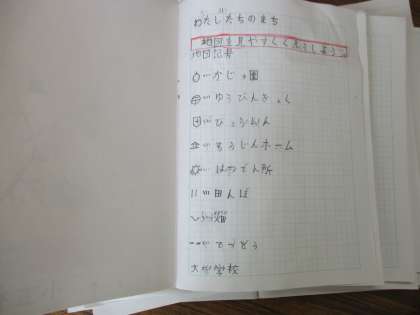 わたしたちのまち
地図を見やすくくふうしよう。
地図記号
かじゅ園
ゆうびんきょく
びょういん
ろうじんホーム
はつでん所
〃 田んぼ
畑
てつどう
大 小学校